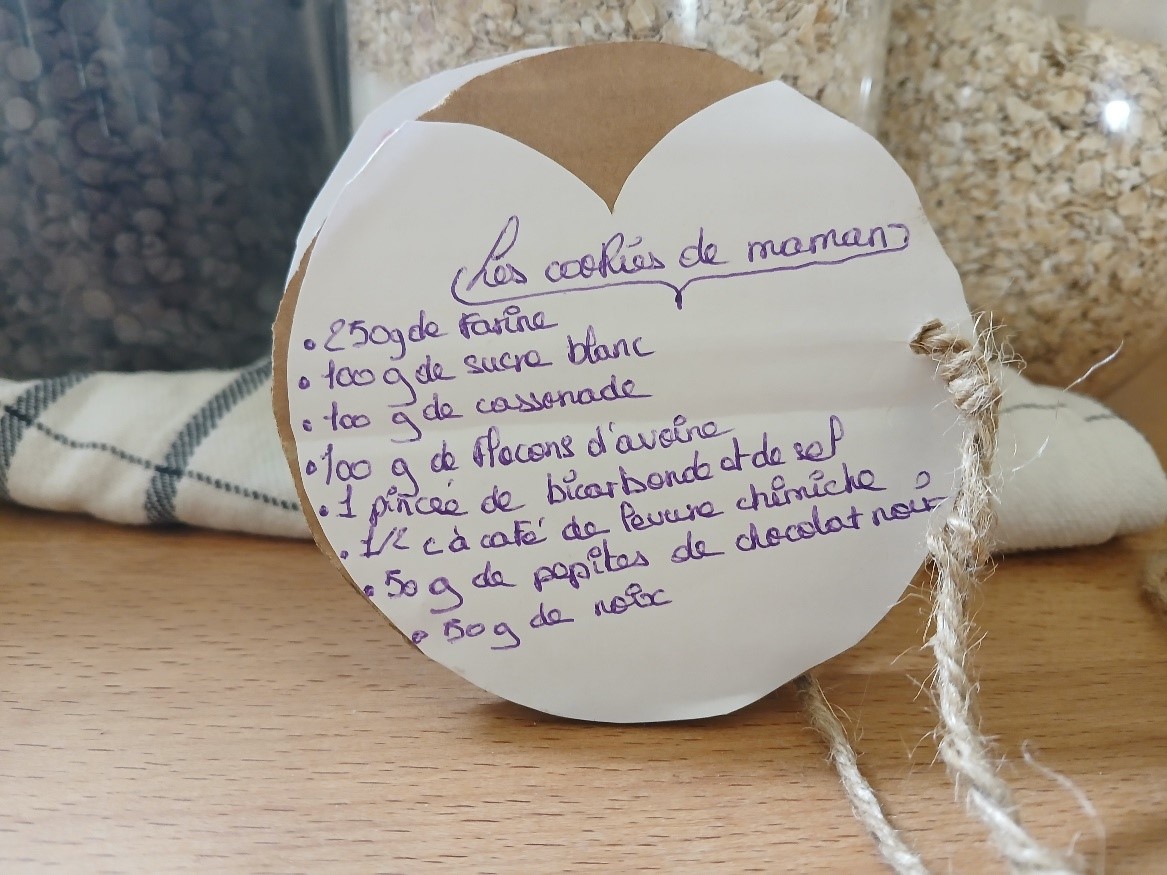 Les cookies de maman
• 250g de farine
• 100 g de sucre blanc
• 100 g de cassonade
• 100 g de flocons d'avoine
• 1 pincée de bicarbonde et de sel
• 1/2 c à café de levure chimiche
• 50 g de pepites de chocolat noir
• 50 g de noix